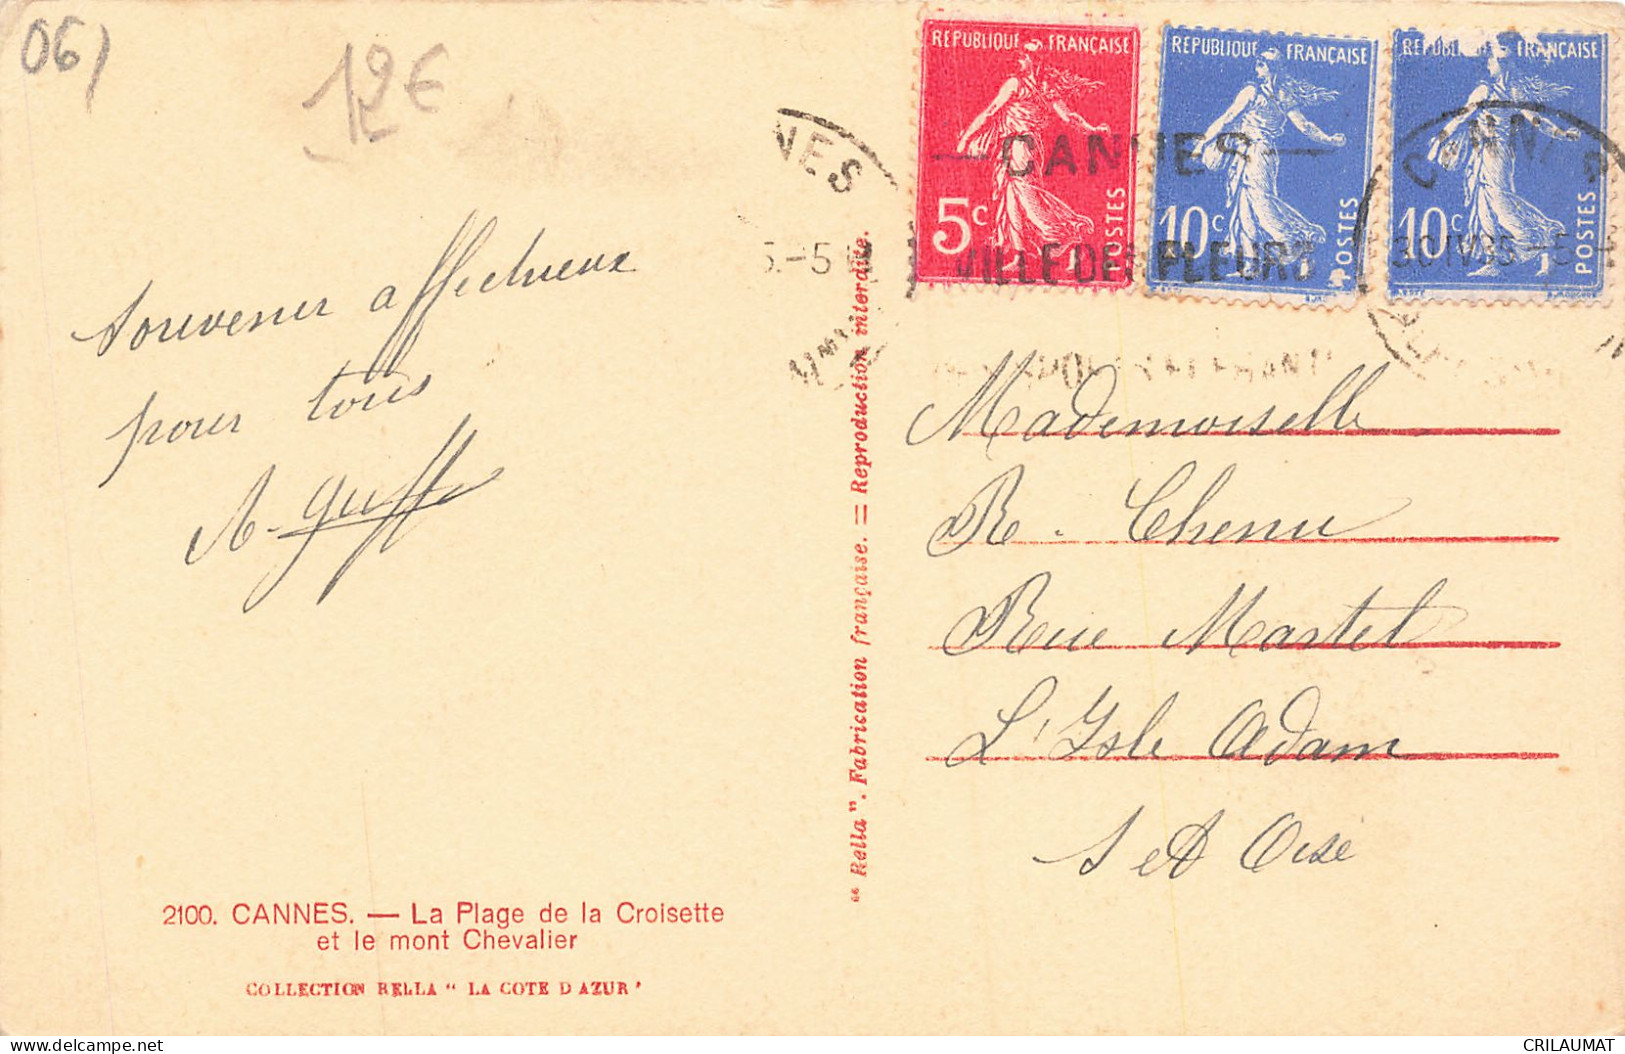 06)
12€
REPUBLIQUE FRANÇAISE
5c
POSTES
REPUBLIQUE FRANÇAISE
10c
POSTES
REPUBLIQUE FRANÇAISE
10c
POSTES
NNES
5.-5
CANNES
VILLE DES FLEURS
CANNES
30 IV 35 -5
Souvenir affectueux
pour tous
Mademoiselle
R. Chenu
Rue Martel
L'Isle Adam
S et Oise
" Rella ". Fabrication française. = Reproduction interdite.
2100. CANNES. — La Plage de la Croisette
et le mont Chevalier
COLLECTION RELLA " LA COTE D AZUR '
CRILAUMAT